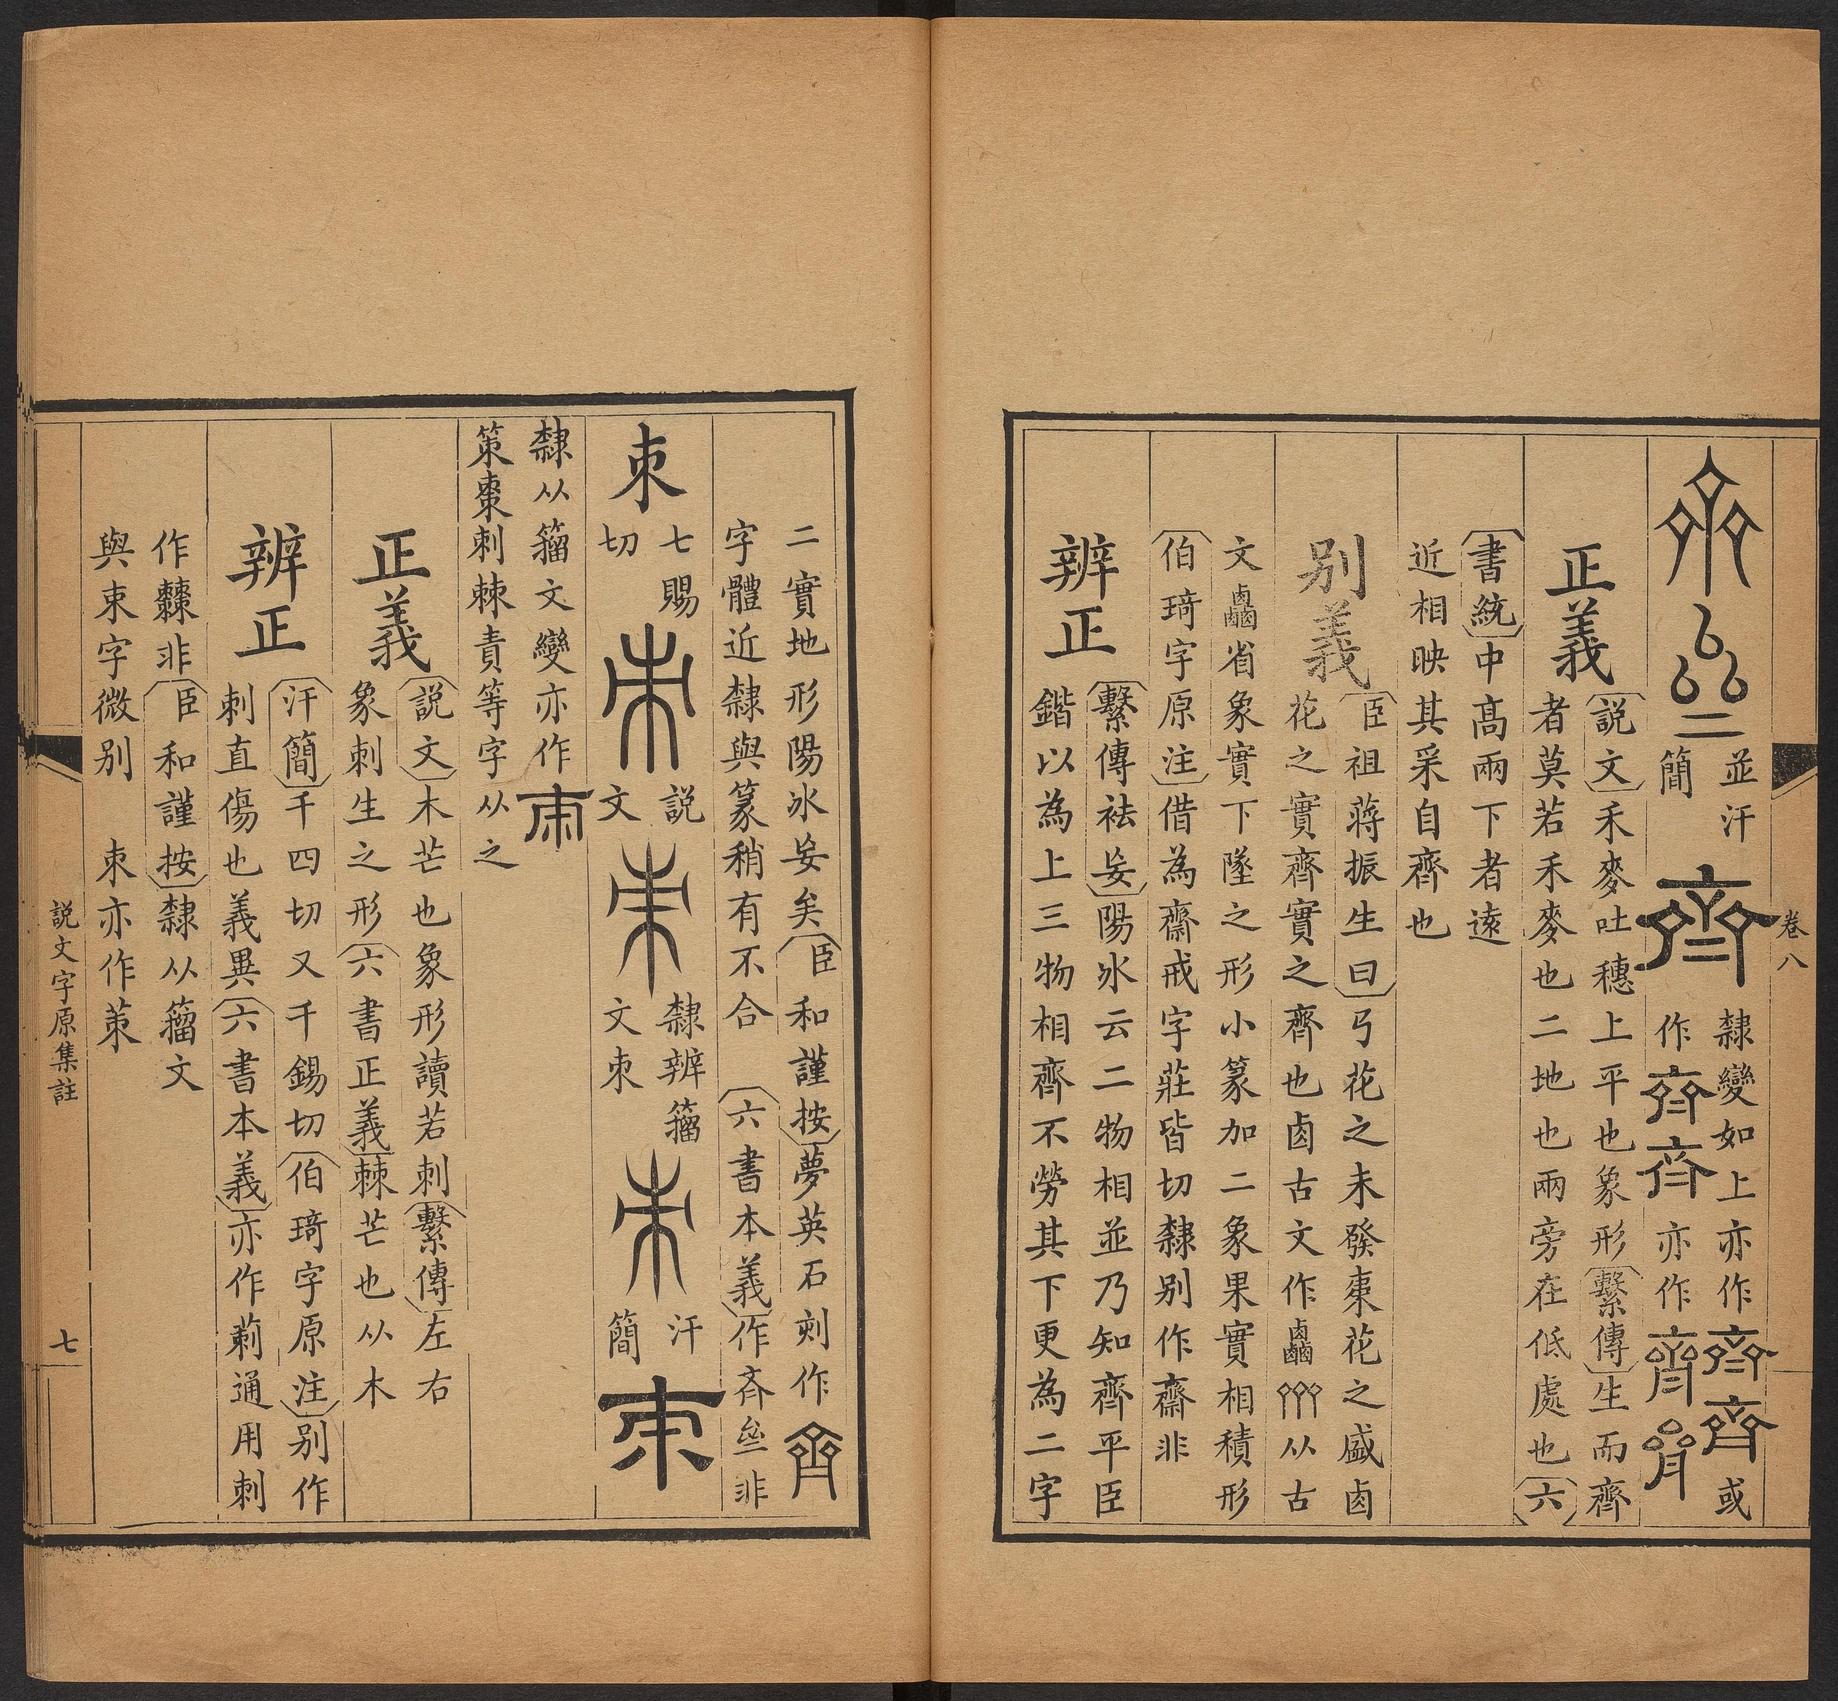 卷八
並汗
簡
齊
隸變如上亦作
或
作
亦作
正義
說文禾麥吐穗上平也象形繫傳生而齊
者莫若禾麥也二地也兩旁在低處也六
書統中高兩下者遠
近相映其采自齊也
別義
臣祖蔣振生曰弓花之未發棗花之盛卤
花之實齊實之齊也卤古文作从古
文省象實下墜之形小篆加二象果實相積形
伯琦字原注借為齋戒字莊皆切隸別作齋非
辨正
繫傳祛妄陽冰云二物相並乃知齊平臣
鍇以為上三物相齊不勞其下更為二字
二實地形陽冰妄矣臣和謹按夢英石刻作
字體近隸與篆稍有不合 六書本義作斉亝非
朿
七賜
切
說
文
隸辨籀
文朿
汗
簡
隸从籀文變亦作
策棗刺棘責等字从之
正義
說文木芒也象形讀若刺繫傳左右
象刺生之形六書正義棘芒也从木
辨正
汗簡千四切又千錫切伯琦字原注別作
刺直傷也義異六書本義亦作莿通用刺
作非臣和謹按隸从籀文
與束字微別 朿亦作茦
說文字原集註
七